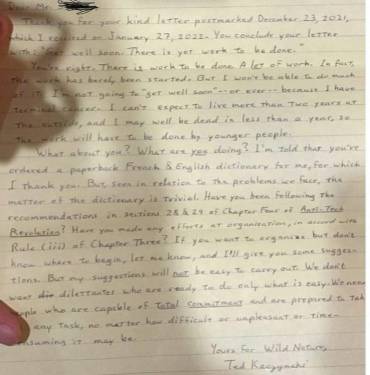 Dear Mr.
Thank you for your kind letter postmarked December 23, 2021,
which I received on January 27, 2022. You conclude your letter
with: "Get well soon. There is yet work to be done."
You're right. There is work to be done. A lot of work. In fact,
the work has barely been started. But I won't be able to do much
of it. I'm not going to "get well soon"--or ever--because I have
terminal cancer. I can't expect to live more than two years at
the outside, and I may well be dead in less than a year, so
the work will have to be done by younger people.
What about you? What are you doing? I'm told that you've
ordered a paperback French & English dictionary for me, for which
I thank you. But, seen in relation to the problems we face, the
matter of the dictionary is trivial. Have you been following the
recommendations in sections 28 & 29 of Chapter Four of Anti-Tech
Revolution? Have you made any efforts at organization, in accord with
Rule (iii) of Chapter Three? If you want to organize but don't
know where to begin, let me know, and I'll give you some sugges-
tions. But my suggestions will not be easy to carry out. We don't
want dilettantes who are ready to do only what is easy. We need
people who are capable of total commitment and are prepared to tak
any task, no matter how difficult or unpleasant or time-
consuming it may be.
Yours for Wild Nature,
Ted Kaczynski